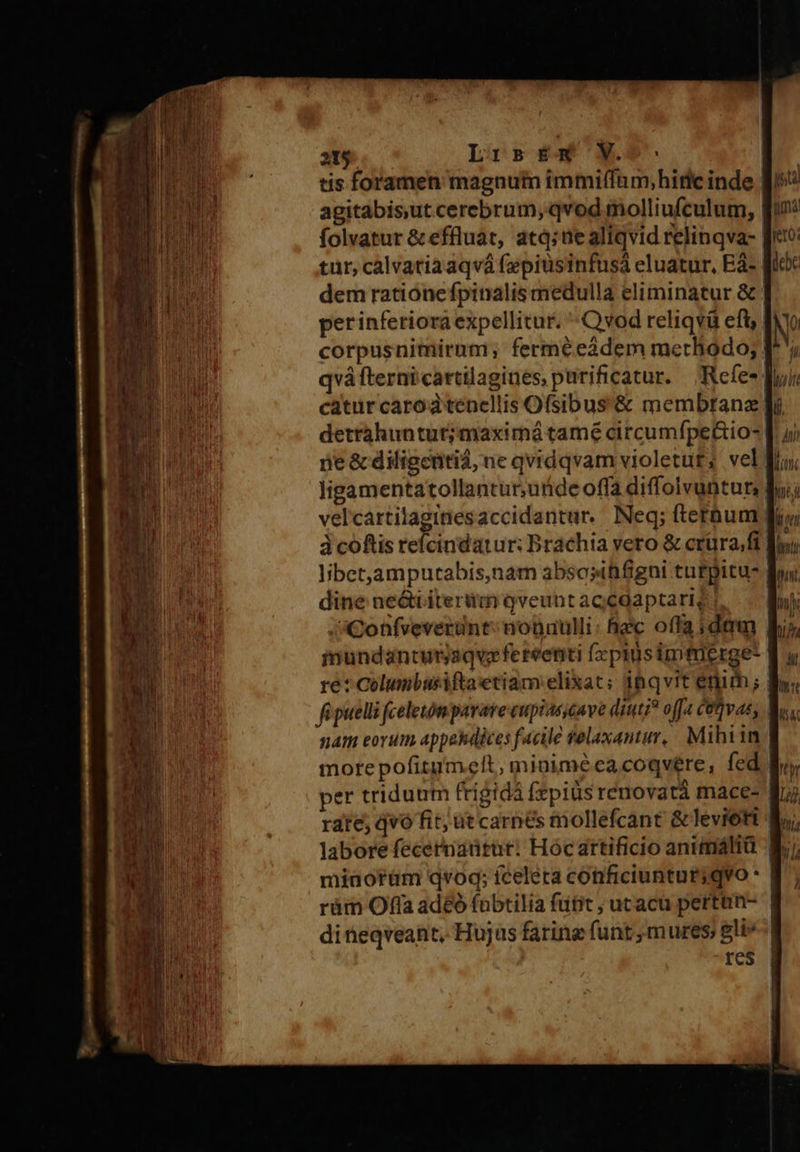 215 LIBER V.
tis foramen magnum immiſſum, hinc inde
agitabis, ut cerebrum, qvod molliuſculum,
ſolvatur & effluat, atq; ne aliqvid relinqva-
tur, calvaria aqvâ ſæpiùs infusâ eluatur. Eâ-
dem ratione ſpinalis medulla eliminatur &
per inferiora expellitur. Qvod reliqvũ eſt,
corpus nimirum, fermè eâdem methodo,
qvâ ſterni cartilagines, purificatur. Reſe-
catur caro à tenellis Oſsibus & membranæ
detrahuntur; maximâ tamẽ circumſpectio-
ne & diligentiâ, ne qvidqvam violetur, vel
ligamenta tollantur, unde oſſa diſſolvuntur,
vel cartilagines accidantur. Neq; ſternum
à coſtis reſcindatur: Brachia vero & crura, ſi
libet, amputabis, nam absq; inſigni turpitu-
dine nec iterum qveunt accõaptari.
Conſveverunt nonnulli hæc oſſa, dum
mundantur, aqvæ ferventi ſæpiùs immerge-
re: Columbus iſta etiam elixat; inqvit enim;
ſi puelli ſceleton parare cupias, cave diuti⁹ oſſa coqvas,
nam eorum appendices facilè relaxantur. Mihi in
more poſitum eſt, minimè ea coqvere, ſed
per triduum frigidâ ſæpiùs renovatâ mace-
rare, qvo fit, ut carnes molleſcant & leviori
labore ſecernantur. Hoc artificio animaliũ
minorum qvoq; ſceleta conficiuntur, qvo-
rum Oſſa adeò ſubtilia ſunt, ut acu pertun-
di neqveant. Hujus farinæ ſunt, mures, gli-
res